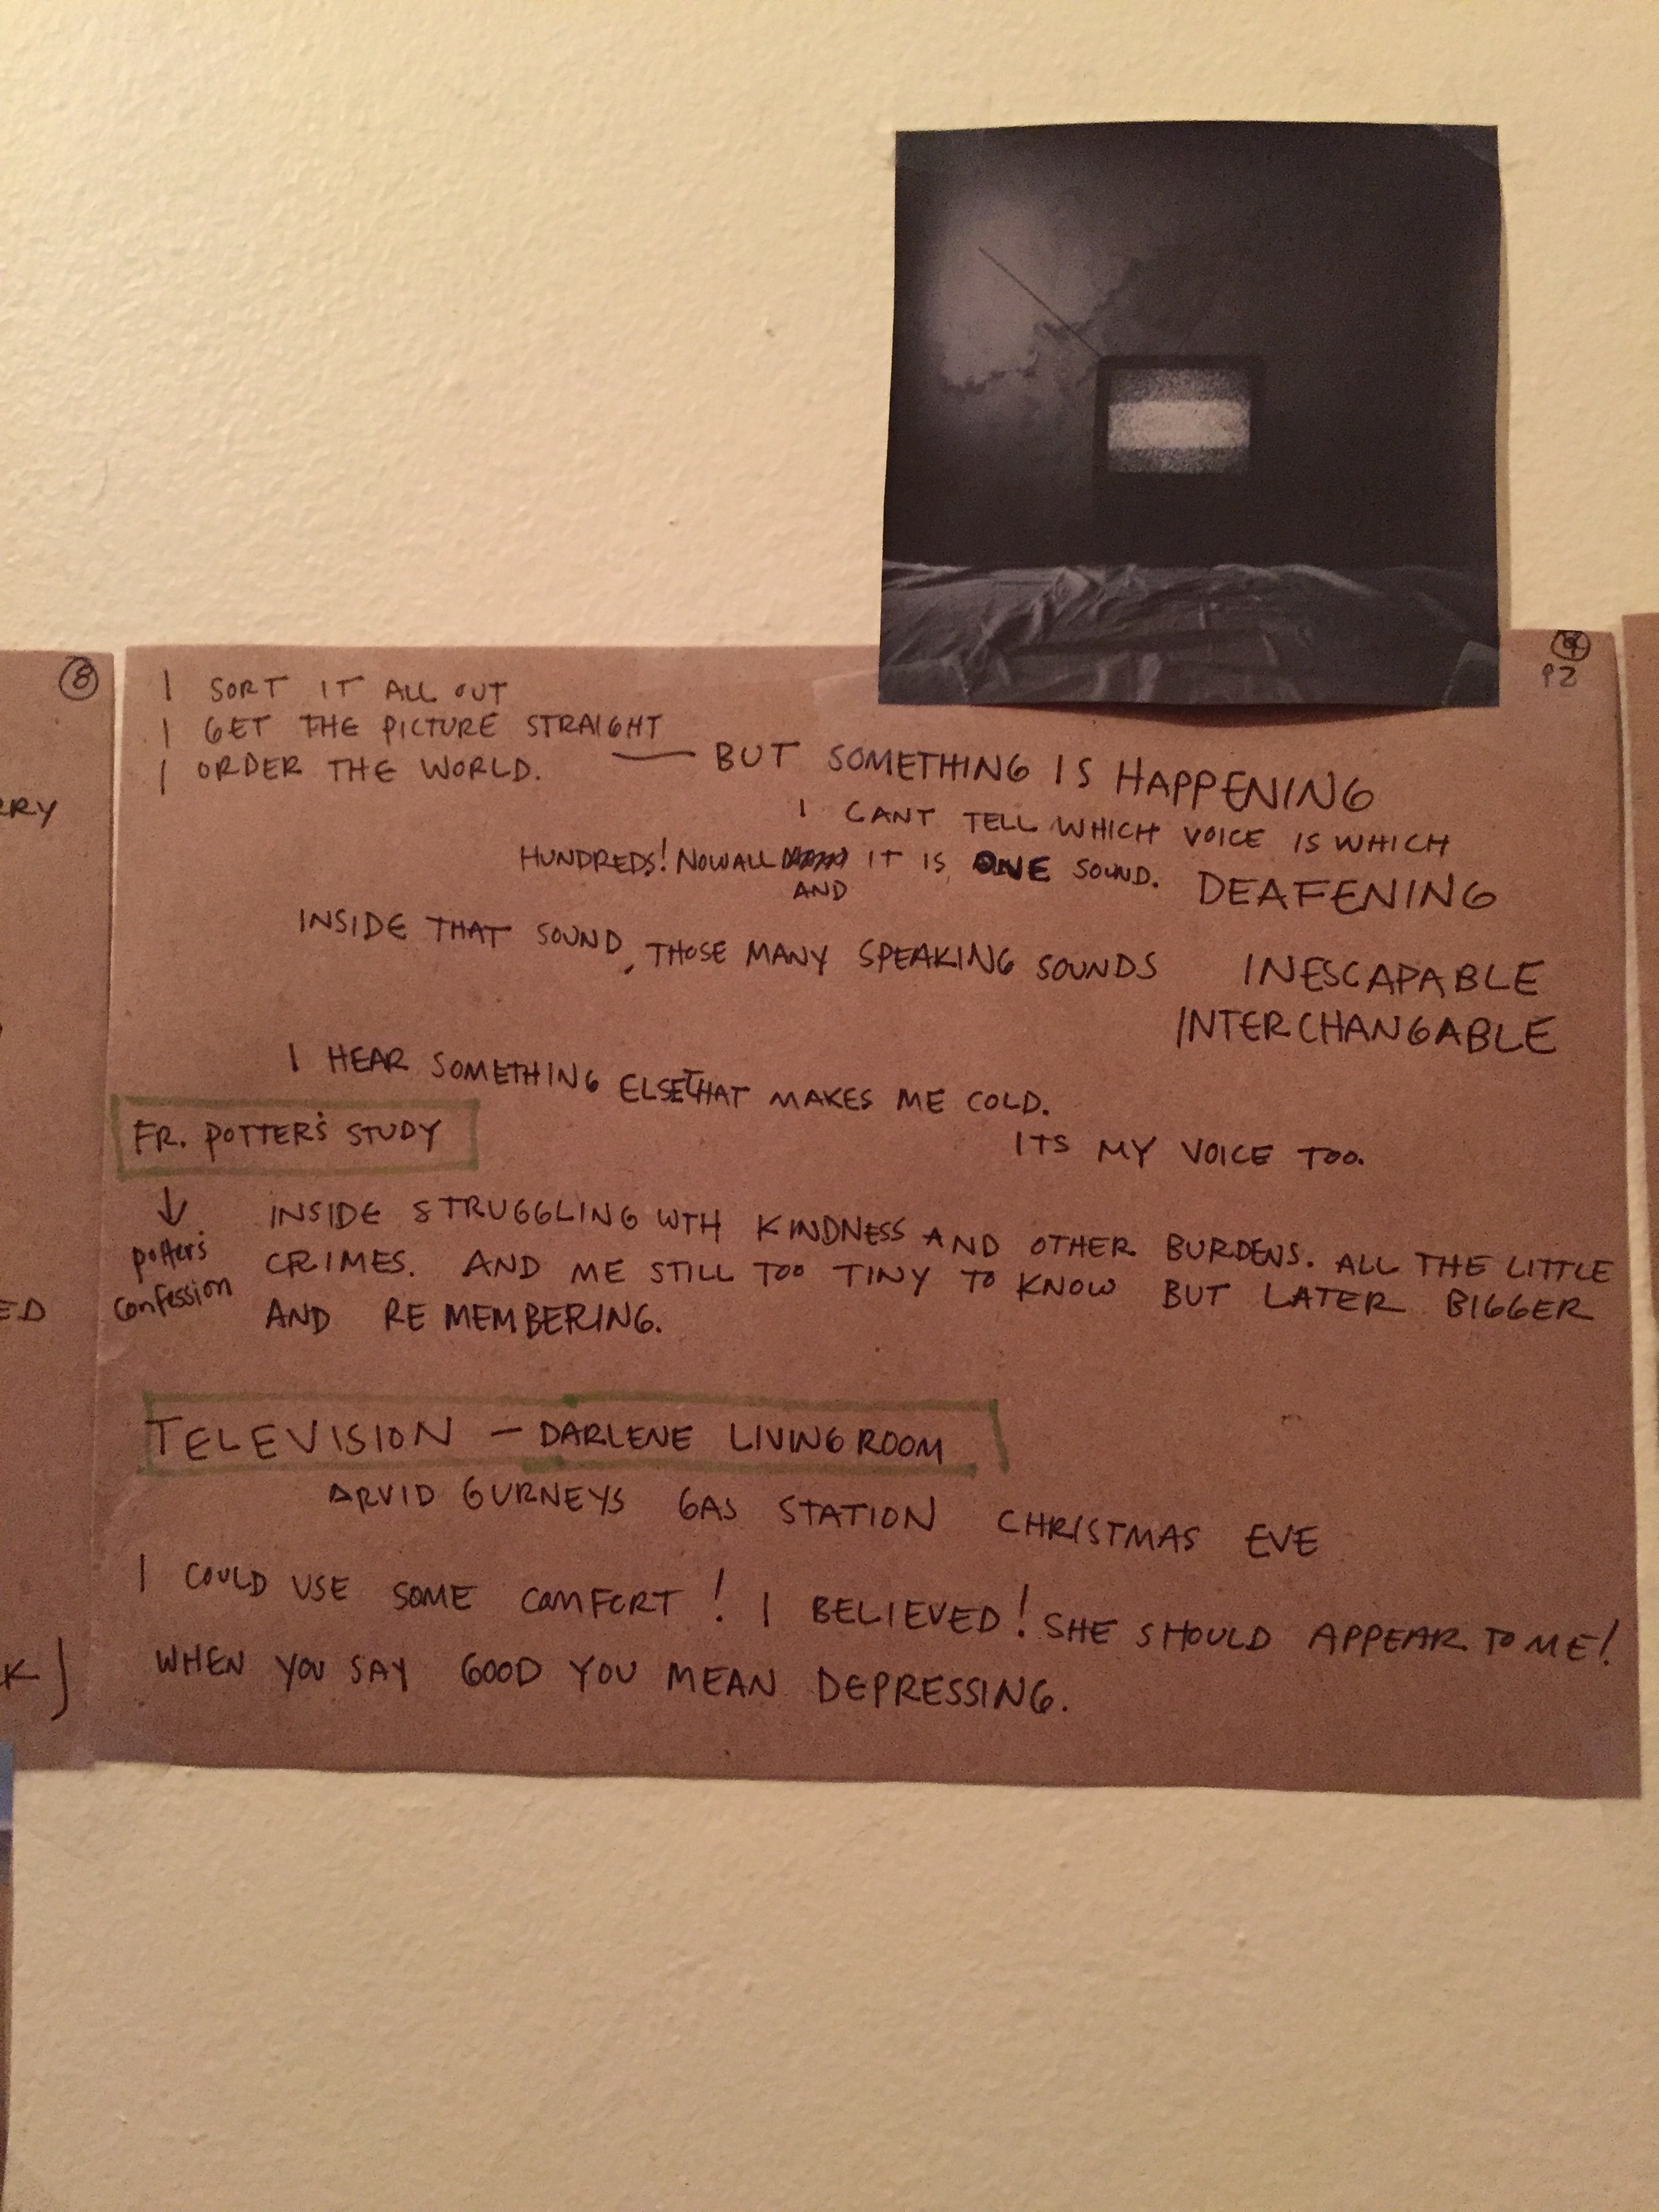 8
RRY
ED
K)
P2
I SORT IT ALL OUT
I GET THE PICTURE STRAIGHT
I ORDER THE WORLD. — BUT SOMETHING IS HAPPENING
I CANT TELL WHICH VOICE IS WHICH
HUNDREDS! NOW ALL IT IS ONE SOUND. DEAFENING
AND
INSIDE THAT SOUND, THOSE MANY SPEAKING SOUNDS INESCAPABLE
INTERCHANGABLE
I HEAR SOMETHING ELSE THAT MAKES ME COLD.
FR. POTTER'S STUDY
ITS MY VOICE TOO.
↓
potter's
confession
INSIDE STRUGGLING WTH KINDNESS AND OTHER BURDENS. ALL THE LITTLE
CRIMES. AND ME STILL TOO TINY TO KNOW BUT LATER BIGGER
AND REMEMBERING.
TELEVISION – DARLENE LIVING ROOM
ARVID GURNEYS GAS STATION CHRISTMAS EVE
I COULD USE SOME COMFORT! I BELIEVED! SHE SHOULD APPEAR TO ME!
WHEN YOU SAY GOOD YOU MEAN DEPRESSING.